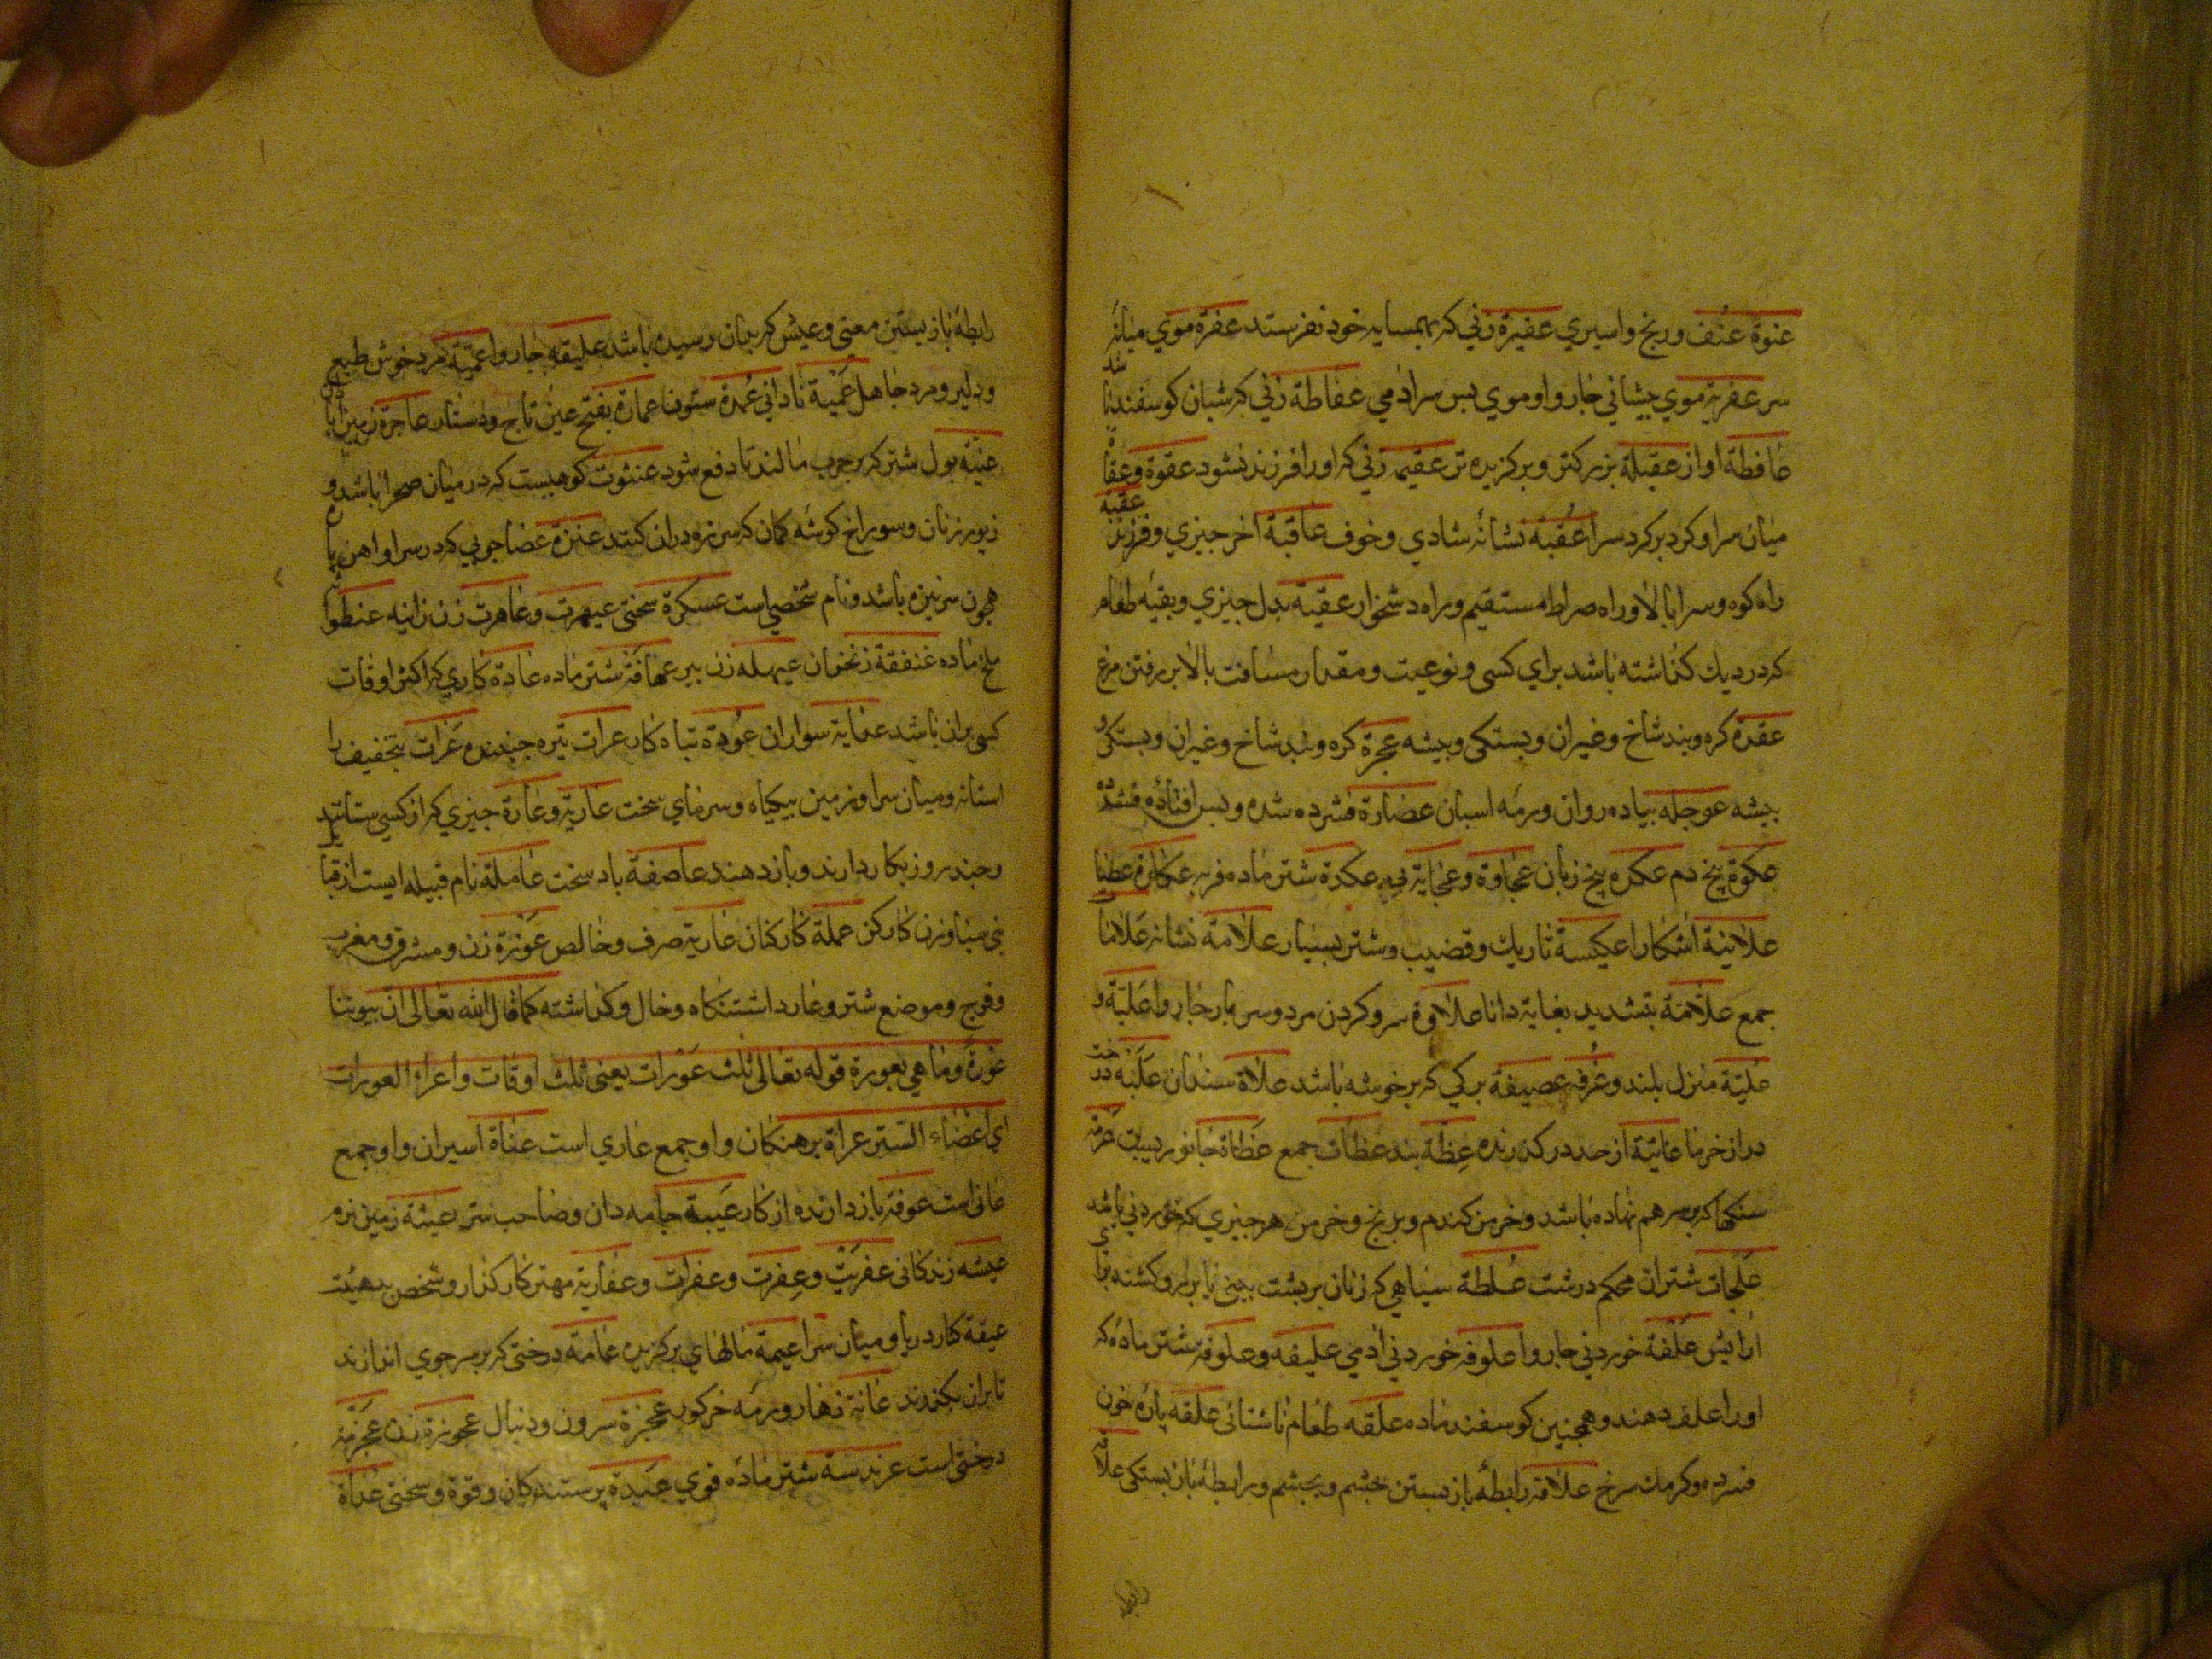 عنوة عنف ورنج واسيري عفيرة زني كه بهمسايه خود نفرستد عفرة موي ميانهٔ
سر عفرية موي پيشاني چاروا وموي پس سر ادمي عفاطة زني كه شبان كوسفند باشد
عافطة اواز عقيلة بزركتر وبركزيده تر عقيمة زني كه اورا فرزند نشود عقوة وعقاة
ميان سرا وكرد بركرد سرا عقبة نشانهٔ شادي وخوف عاقبة اخر چيزي وفرزند عقبة
راه كوه وسرا بالا وراه صراط مستقيم وراه دشخوار عقبة بدل چيزي وبقيهٔ طعام
كه در ديك كذاشته باشد براي كسي ونوعيت ومقدار مسافت بالا بر رفتن مرغ
عقدة كره وبند شاخ وغيران وبستكي وبيشه عجرة كره وبند شاخ وغيران وبستكي و
بيشه عوجله پياده روان ورمه اسبان عصارة فشرده شده وپس افتاده فشده
عكوة بيخ دم عكره بيخ زبان عجاوة وعجاية پي عكرة شتر ماده فربه
علانية اشكارا عكيسة تاريك وقضيب وشتر بسيار علامة نشانه علامات
جمع علامة بتشديد بغاية دانا علاوة سر وكردن مرد وسر بار چاروا علية و
علية منزل بلند وغرفه عصيفة بركي كه بر خوشه باشد علاة سندان علبه درخت
دراز خرما عاتية از حد در كذرنده عظة پند عظات جمع عظاة جانوريست عرمة
سنكها كه بر سر هم نهاده باشد وخرمن كندم وبرنج وخرمن هر چيزي كه خوردني باشد
علجات شتران محكم درشت علطة سياهي كه زنان بر پشت بيني يا بر ابرو كشند براي
ارايش علفة خوردني چاروا علوفه خوردني ادمي عليفه وعلوفة شتر ماده كه
اورا علف دهند وهمچنين كوسفند ماده علقه طعام ناشتائي علقه پارهٔ خون
فسرده وكرمك سرخ علاقة رابطهٔ باز بستن خشم وبچشم ورابطهٔ باز بستكي علاقه
رابطهٔ
رابطهٔ باز بستن معني وعيش كه بدان رسيده باشد عليقه چاروا عمية مرد خوش طبع
ودلير ومرد جاهل عمية ناداني عمدة ستون عمارة بفتح عين تاج ودستار عاجرة زمين
عنية بول شتر كه بر جرب مالند تا دفع شود عنثوت كوهيست كه در ميان صحرا باشد و
زيور زنان وسوراخ كوشه كمان كه سر زه دران كنند عنزة عصا چوبي كه در سر او اهن
همچون سر نيزه باشد ونام شخصي است عسكرة سختي عيهرت وعاهرت زن زانيه
ملخ ماده عنفقة زنخدان عيهله زن پير شتر ماده عادة كاري كه اكثر اوقات
كسي بران باشد عماية سواران عودة تباه كار عرات تيره جنبنده عرات بتخفيف را
استانه وميان سرا وزمين بيكياه وسرماي سخت عارية وعارة چيزي كه از كسي ستانند
وچند روز بكار دارند وباز دهند عاصفة باد سخت عاملة نام قبيله ايست از
وزن كاركن عملة كاركنان عاربة صرف وخالص عورة زن ومشرق ومغرب
وفرج وموضع شتر وعار داشتنكاه وخال وكذاشته كما قال الله تعالى ان بيوتنا
عورة وما هي بعورة قوله تعالى ثلث عورات يعني ثلث اوقات واعراء العورات
اي اعضاء الستر عراة برهنكان واو جمع عاري است عناة اسيران واو جمع
عاني است عوفه باز دارنده از كار عيبة جامه دان وصاحب ستر عيشة زمين نرم
عيشه زندكاني عفريت وعفرت وعفرات وعفارية مهتر كار كذار وشخص بد هيئت
عيقة كار دريا وميان سرا عيمة مالهاي بركزيده عامة درختي كه بر سر جوي اندازند
تا بران بكذرند عانة زهار ورمه خركور عجزة سرون ودنبال عجوزة زن
درختي است عرندسة شتر مادهٔ قوي عبدة پرستندكان وقوة وسختي عداة